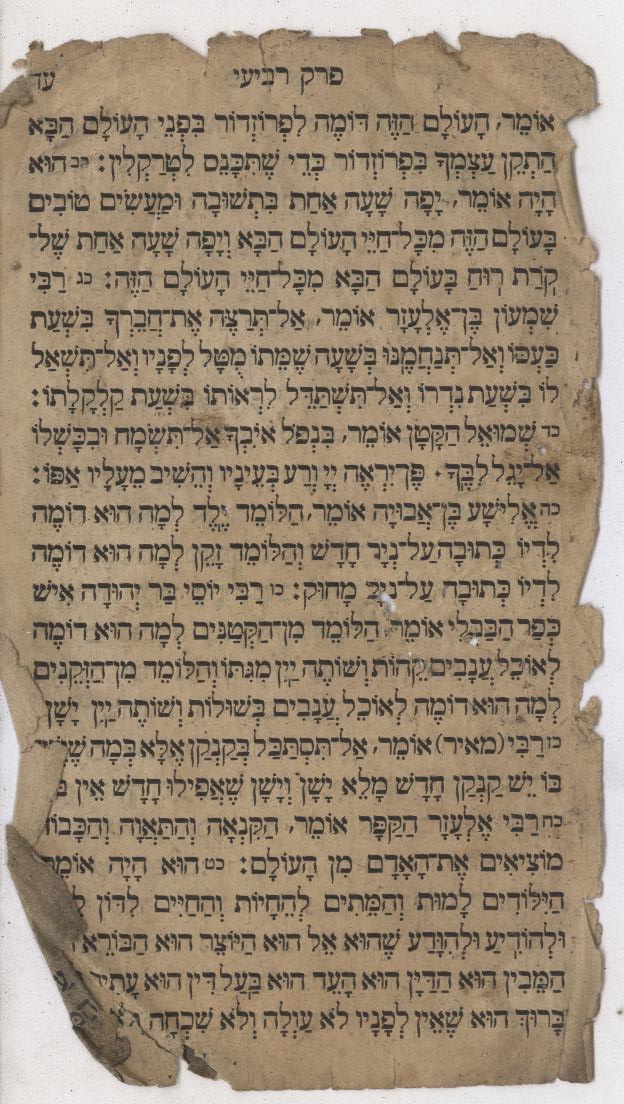 פרק רביעי עד
אוֹמֵר, הָעוֹלָם הַזֶּה דּוֹמֶה לִפְרוֹזְדוֹר בִּפְנֵי הָעוֹלָם הַבָּא
הַתְקֵן עַצְמְךָ בִּפְרוֹזְדוֹר כְּדֵי שֶׁתִּכָּנֵם לִטְרַקְלִין: כב הוּא
הָיָה אוֹמֵר, יָפָה שָׁעָה אַחַת בִּתְשׁוּבָה וּמַעֲשִׂים טוֹבִים
בָּעוֹלָם הַזֶּה מִכָּל־חַיֵּי הָעוֹלָם הַבָּא וְיָפָה שָׁעָה אַחַת שֶׁל־
קֹרַת רוּחַ בָּעוֹלָם הַבָּא מִכָּל־חַיֵּי הָעוֹלָם הַזֶּה: כג רַבִּי
שִׁמְעוֹן בֶּן־אֶלְעָזָר אוֹמֵר, אַל־תְּרַצֶּה אֶת־חֲבֵרְךָ בִּשְׁעַת
כַּעְסוֹ וְאַל־תְּנַחֲמֶנּוּ בְּשָׁעָה שֶׁמֵּתוֹ מֻטָּל לְפָנָיו וְאַל־תִּשְׁאַל
לוֹ בִּשְׁעַת נִדְרוֹ וְאַל־תִּשְׁתַּדֵּל לִרְאוֹתוֹ בִּשְׁעַת קַלְקָלָתוֹ:
כד שְׁמוּאֵל הַקָּטָן אוֹמֵר, בִּנְפֹל אוֹיִבְךָ אַל־תִּשְׂמָח וּבִכָּשְׁלוֹ
אַל־יָגֵל לִבֶּךָ. פֶּן־יִרְאֶה יְיָ וְרַע בְּעֵינָיו וְהֵשִׁיב מֵעָלָיו אַפּוֹ:
כה אֱלִישָׁע בֶּן־אֲבוּיָה אוֹמֵר, הַלּוֹמֵד יֶלֶד לְמָה הוּא דוֹמֶה
לִדְיוֹ כְּתוּבָה עַל־נְיָר חָדָשׁ וְהַלּוֹמֵד זָקֵן לְמָה הוּא דוֹמֶה
לִדְיוֹ כְּתוּבָה עַל־נְיָר מָחוּק: כו רַבִּי יוֹסֵי בַּר יְהוּדָה אִישׁ
כְּפַר הַבַּבְלִי אוֹמֵר, הַלּוֹמֵד מִן־הַקְּטַנִּים לְמָה הוּא דוֹמֶה
לְאוֹכֵל עֲנָבִים קֵהוֹת וְשׁוֹתֶה יַיִן מִגִּתּוֹ וְהַלּוֹמֵד מִן־הַזְּקֵנִים
לְמָה הוּא דוֹמֶה לְאוֹכֵל עֲנָבִים בְּשׁוּלוֹת וְשׁוֹתֶה יַיִן יָשָׁן
כז רַבִּי (מאיר) אוֹמֵר, אַל־תִּסְתַּכֵּל בְּקַנְקַן אֶלָּא בְּמָה
בּוֹ יֵשׁ קַנְקַן חָדָשׁ מָלֵא יָשָׁן וְיָשָׁן שֶׁאֲפִילוּ חָדָשׁ אֵין
כח רַבִּי אֶלְעָזָר הַקַּפָּר אוֹמֵר, הַקִּנְאָה וְהַתַּאֲוָה וְהַכָּבוֹד
מוֹצִיאִים אֶת־הָאָדָם מִן הָעוֹלָם: כט הוּא הָיָה אוֹמֵר
הַיִּלּוֹדִים לָמוּת וְהַמֵּתִים לְהֵחָיוֹת וְהַחַיִּים לִדּוֹן
וּלְהוֹדִיעַ וּלְהִוָּדַע שֶׁהוּא אֵל הוּא הַיּוֹצֵר הוּא הַבּוֹרֵא
הַמֵּבִין הוּא הַדַּיָּן הוּא הָעֵד הוּא בַּעַל דִּין הוּא עָתִיד
בָּרוּךְ הוּא שֶׁאֵין לְפָנָיו לֹא עַוְלָה וְלֹא שִׁכְחָה